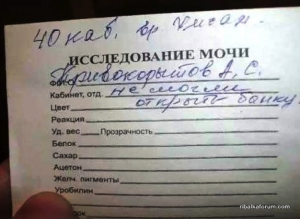 40 каб. вр Хисам.
ИССЛЕДОВАНИЕ МОЧИ
Кривокорытов А. С.
Кабинет, отд. не могли
Цвет открыть банку
Реакция
Уд. вес Прозрачность
Белок
Сахар
Ацетон
Желч. пигменты
Уробилин
ribalkaforum.com